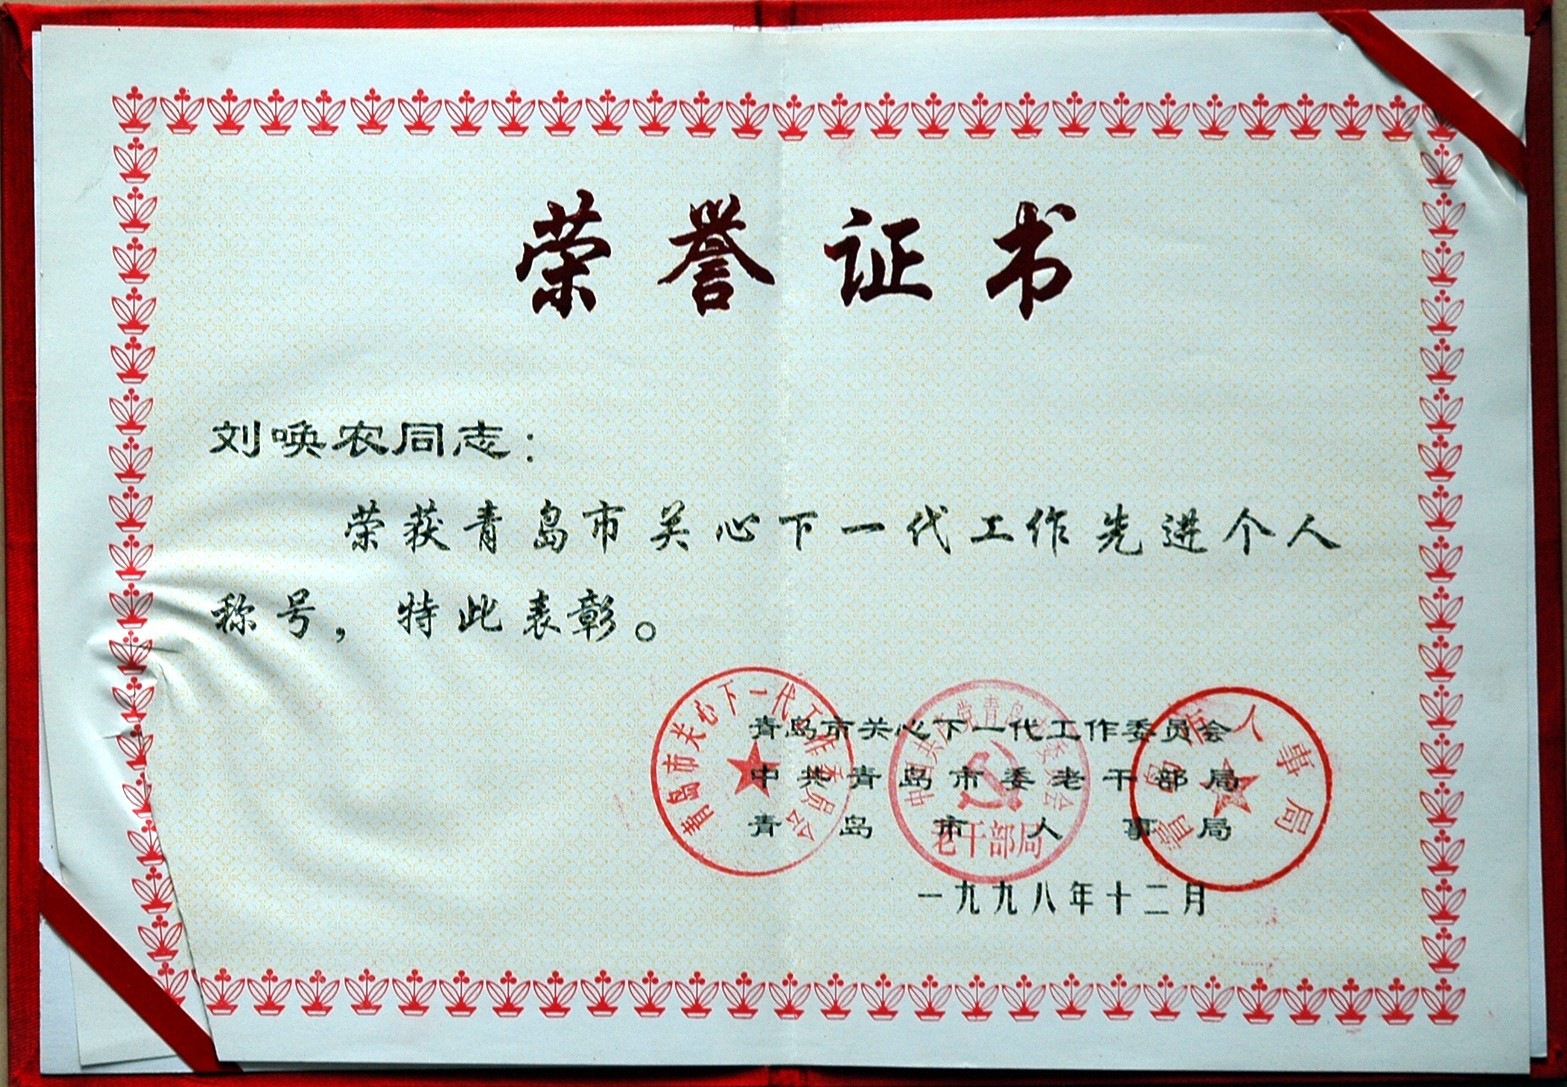 荣誉证书
刘唤农同志：
荣获青岛市关心下一代工作先进个人
称号，特此表彰。
青岛市关心下一代工作委员会
中共青岛市委老干部局
青岛市人事局
一九九八年十二月
青岛市关心下一代工作委员会
中国共产党青岛市委员会
老干部局
青岛市人事局